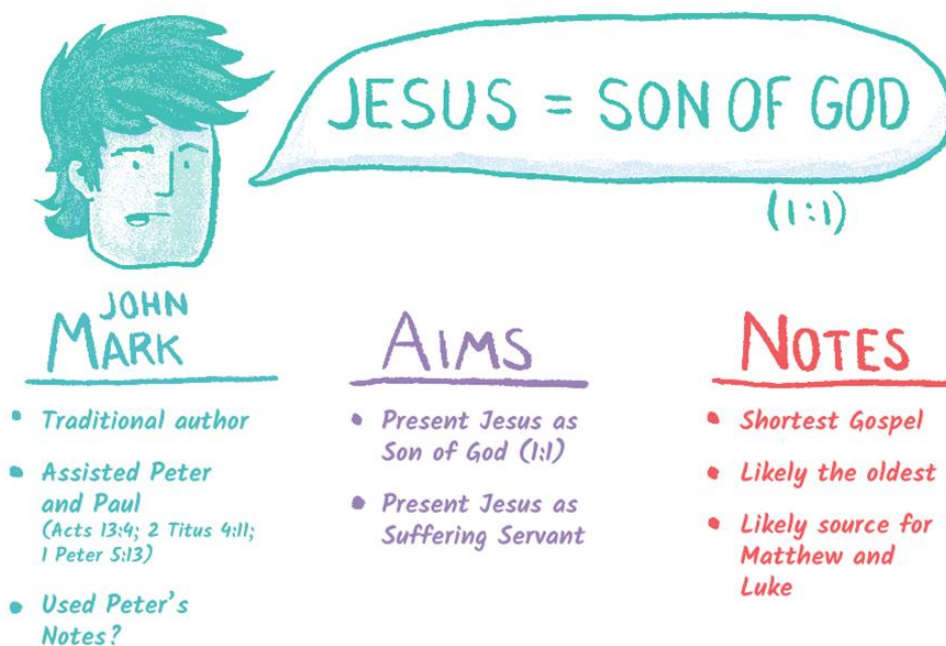 JESUS = SON OF GOD
(1:1)
JOHN
MARK
• Traditional author
• Assisted Peter
and Paul
(Acts 13:4; 2 Titus 4:11;
1 Peter 5:13)
• Used Peter's
Notes?
AIMS
• Present Jesus as
Son of God (1:1)
• Present Jesus as
Suffering Servant
NOTES
• Shortest Gospel
• Likely the oldest
• Likely source for
Matthew and
Luke